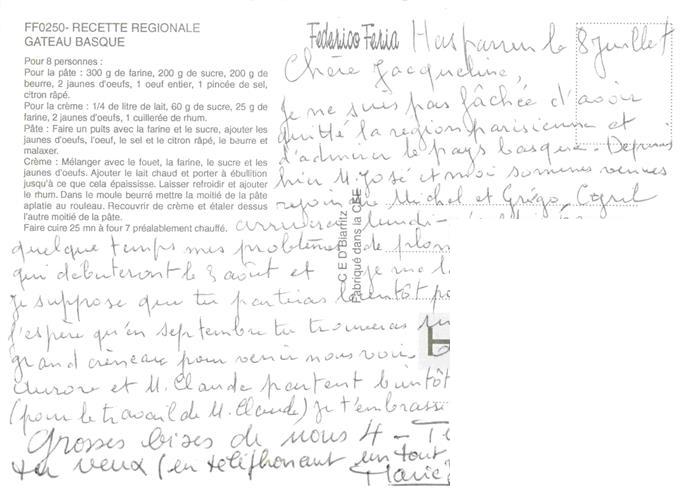 FF0250- RECETTE REGIONALE
GATEAU BASQUE
Pour 8 personnes :
Pour la pâte : 300 g de farine, 200 g de sucre, 200 g de
beurre, 2 jaunes d'oeufs, 1 oeuf entier, 1 pincée de sel,
citron râpé.
Pour la crème : 1/4 de litre de lait, 60 g de sucre, 25 g de
farine, 2 jaunes d'oeufs, 1 cuillerée de rhum.
Pâte : Faire un puits avec la farine et le sucre, ajouter les
jaunes d'oeufs, l'oeuf, le sel et le citron râpé, le beurre et
malaxer.
Crème : Mélanger avec le fouet, la farine, le sucre et les
jaunes d'oeufs. Ajouter le lait chaud et porter à ébullition
jusqu'à ce que cela épaississe. Laisser refroidir et ajouter
le rhum. Dans le moule beurré mettre la moitié de la pâte
aplatie au rouleau. Recouvrir de crème et étaler dessus
l'autre moitié de la pâte.
Faire cuire 25 mn à four 7 préalablement chauffé.
Federico Feria
C E D Biarritz
Fabriqué dans la CEE
Hasparren le 8 juillet
Chère Jacqueline,
Je ne suis pas fâchée d'avoir
quitté la région parisienne et
d'admirer le pays basque. Depuis
hier M. José et moi sommes venues
rejoindre Michel et Grégo, Cyril
arrivera lundi
quelque temps mes problèmes de
qui débuteront le 3 août et je me
Je suppose que tu partiras bientôt
J'espère qu'en septembre tu trouveras un
grand créneau pour venir nous voir.
Aurore et M. Claude partent bientôt
(pour le travail de M. Claude) je t'embrasse
Grosses bises de nous 4 -
tu veux (en téléphonant un tout
Marie